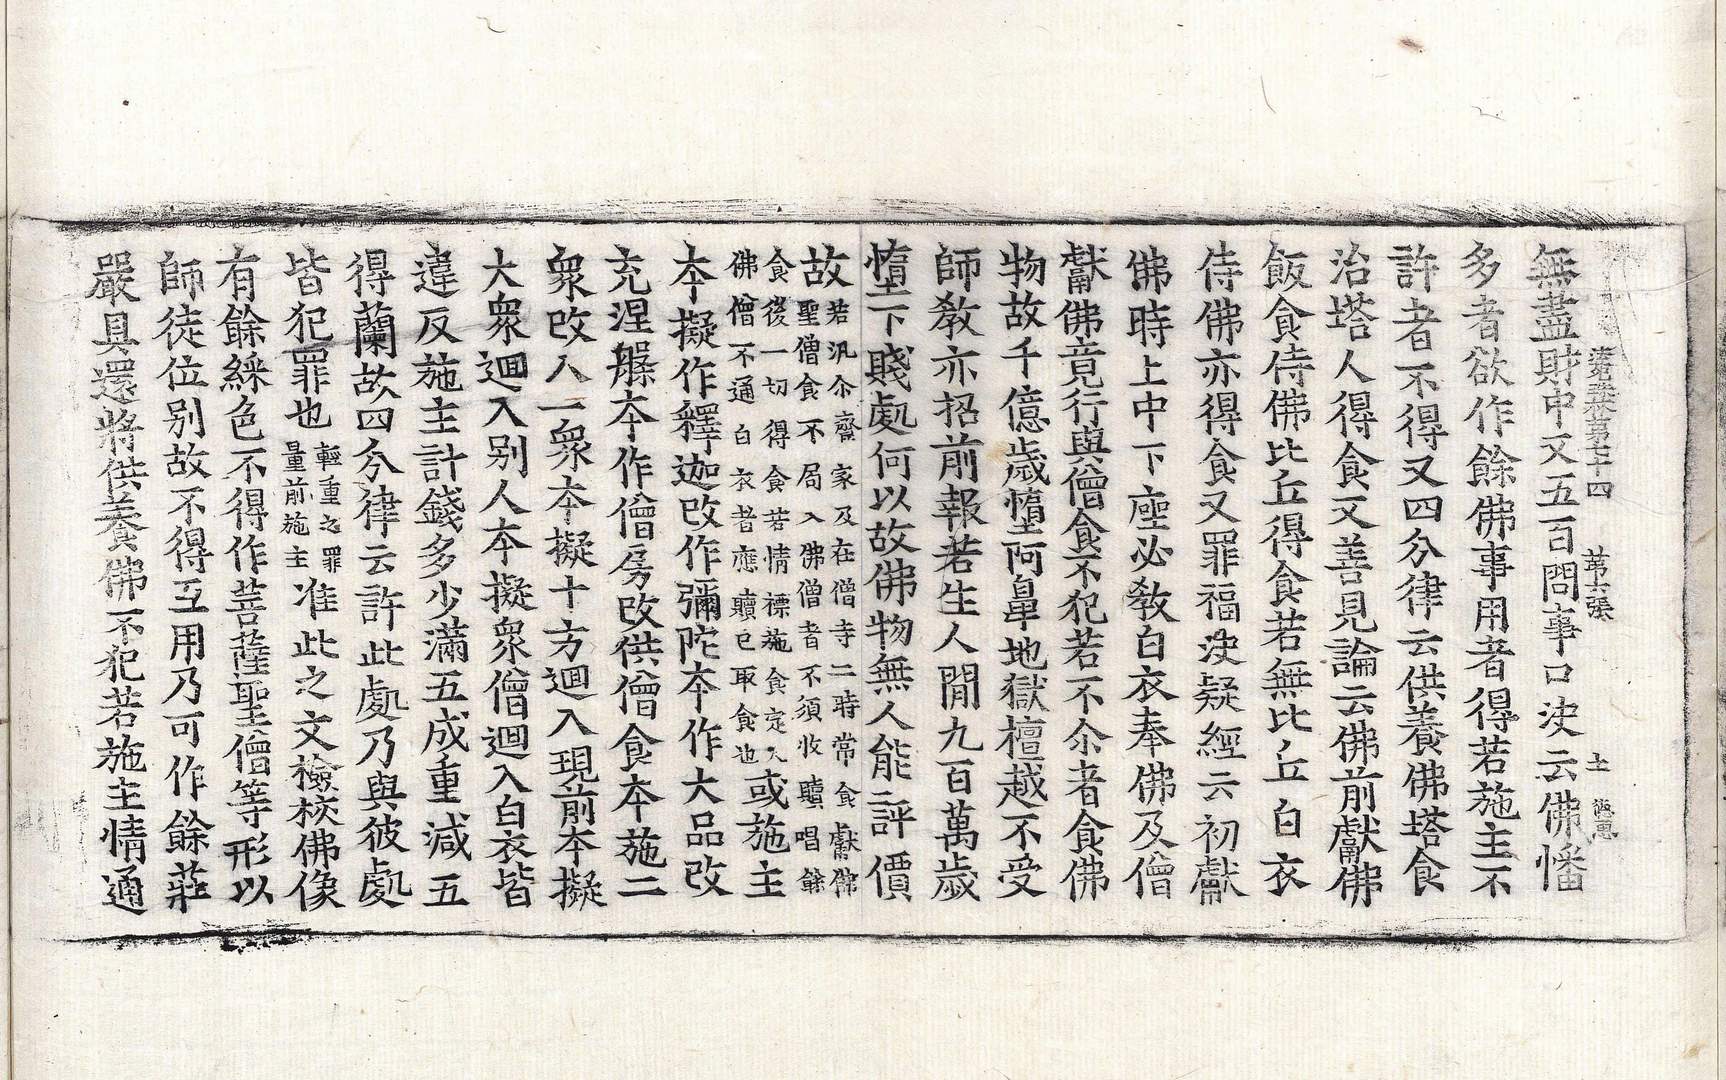 無盡財中又五百問事口決云佛幡
多者欲作餘佛事用者得若施主不
許者不得又四分律云供養佛塔食
治塔人得食又善見論云佛前獻佛
飯食侍佛比丘得食若無比丘白衣
侍佛亦得食又罪福決疑經云初獻
佛時上中下座必教白衣奉佛及僧
獻佛竟行與僧食不犯若不尒者食佛
物故千億歲墮阿鼻地獄檀越不受
師教亦招前報若生人閒九百萬歲
墮下賤處何以故佛物無人能評價
故若汎尒齋家及在僧寺二時常食獻佛
聖僧食不局入佛僧者不須收贖唱餘
食後一切得食若情標施食定入
佛僧不通白衣者應贖已取食也或施主
本擬作釋迦改作彌陀本作大品改
充涅槃本作僧房改供僧食本施二
衆改入一衆本擬十方迴入現前本擬
大衆迴入別人本擬衆僧迴入白衣皆
違反施主計錢多少滿五成重減五
得蘭故四分律云許此處乃與彼處
皆犯罪也輕重之罪
量前施主准此之文檢校佛像
有餘綵色不得作菩薩聖僧等形以
師徒位別故不得互用乃可作餘莊
嚴具還將供養佛不犯若施主情通